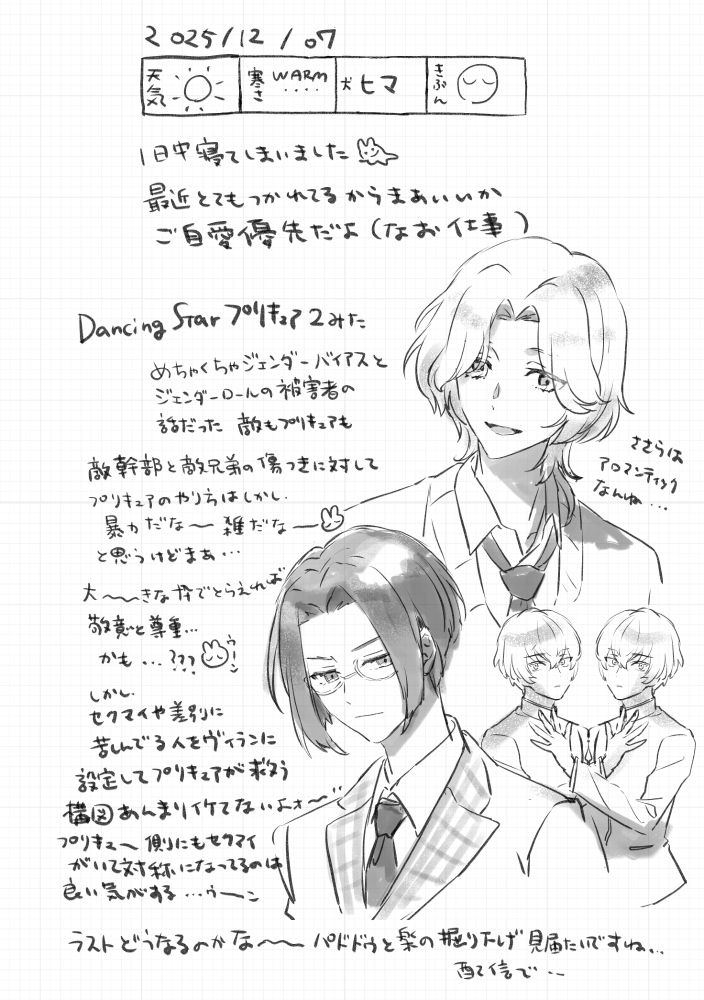 2025/12/07
天気 寒さ WARM 犬 ヒマ きぶん
1日中寝てしまいました
最近とてもつかれてるからまあいいか
ご自愛優先だよ(なお仕事)
Dancing Star プリキュア2みた
めちゃくちゃジェンダーバイアスと
ジェンダーロールの被害者の
話だった 敵もプリキュアも
敵幹部と敵兄弟の傷つきに対して
プリキュアのやり方はしかし
暴力だな〜 雑だな〜
と思うけどまぁ…
大〜〜きな枠でとらえれば
敬意と尊重…
かも…???
ウーン
しかし
セクマイや差別に
苦しんでる人をヴィランに
設定してプリキュアが救う
構図あんまりイケてないよォ〜
プリキュ〜側にもセクマイ
がいて対称になってるのは
良い気がする…ゥーン
ささらは
アロマンティック
なんね…
ラストどうなるのかな〜〜 パドドゥと楽の掘り下げ見届たいですね…
配信で…